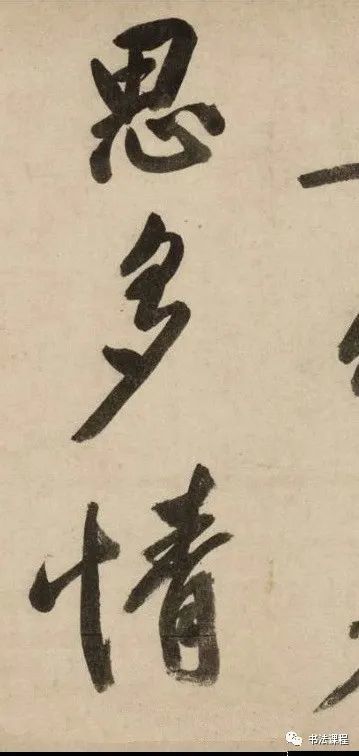 思多情
书法课程